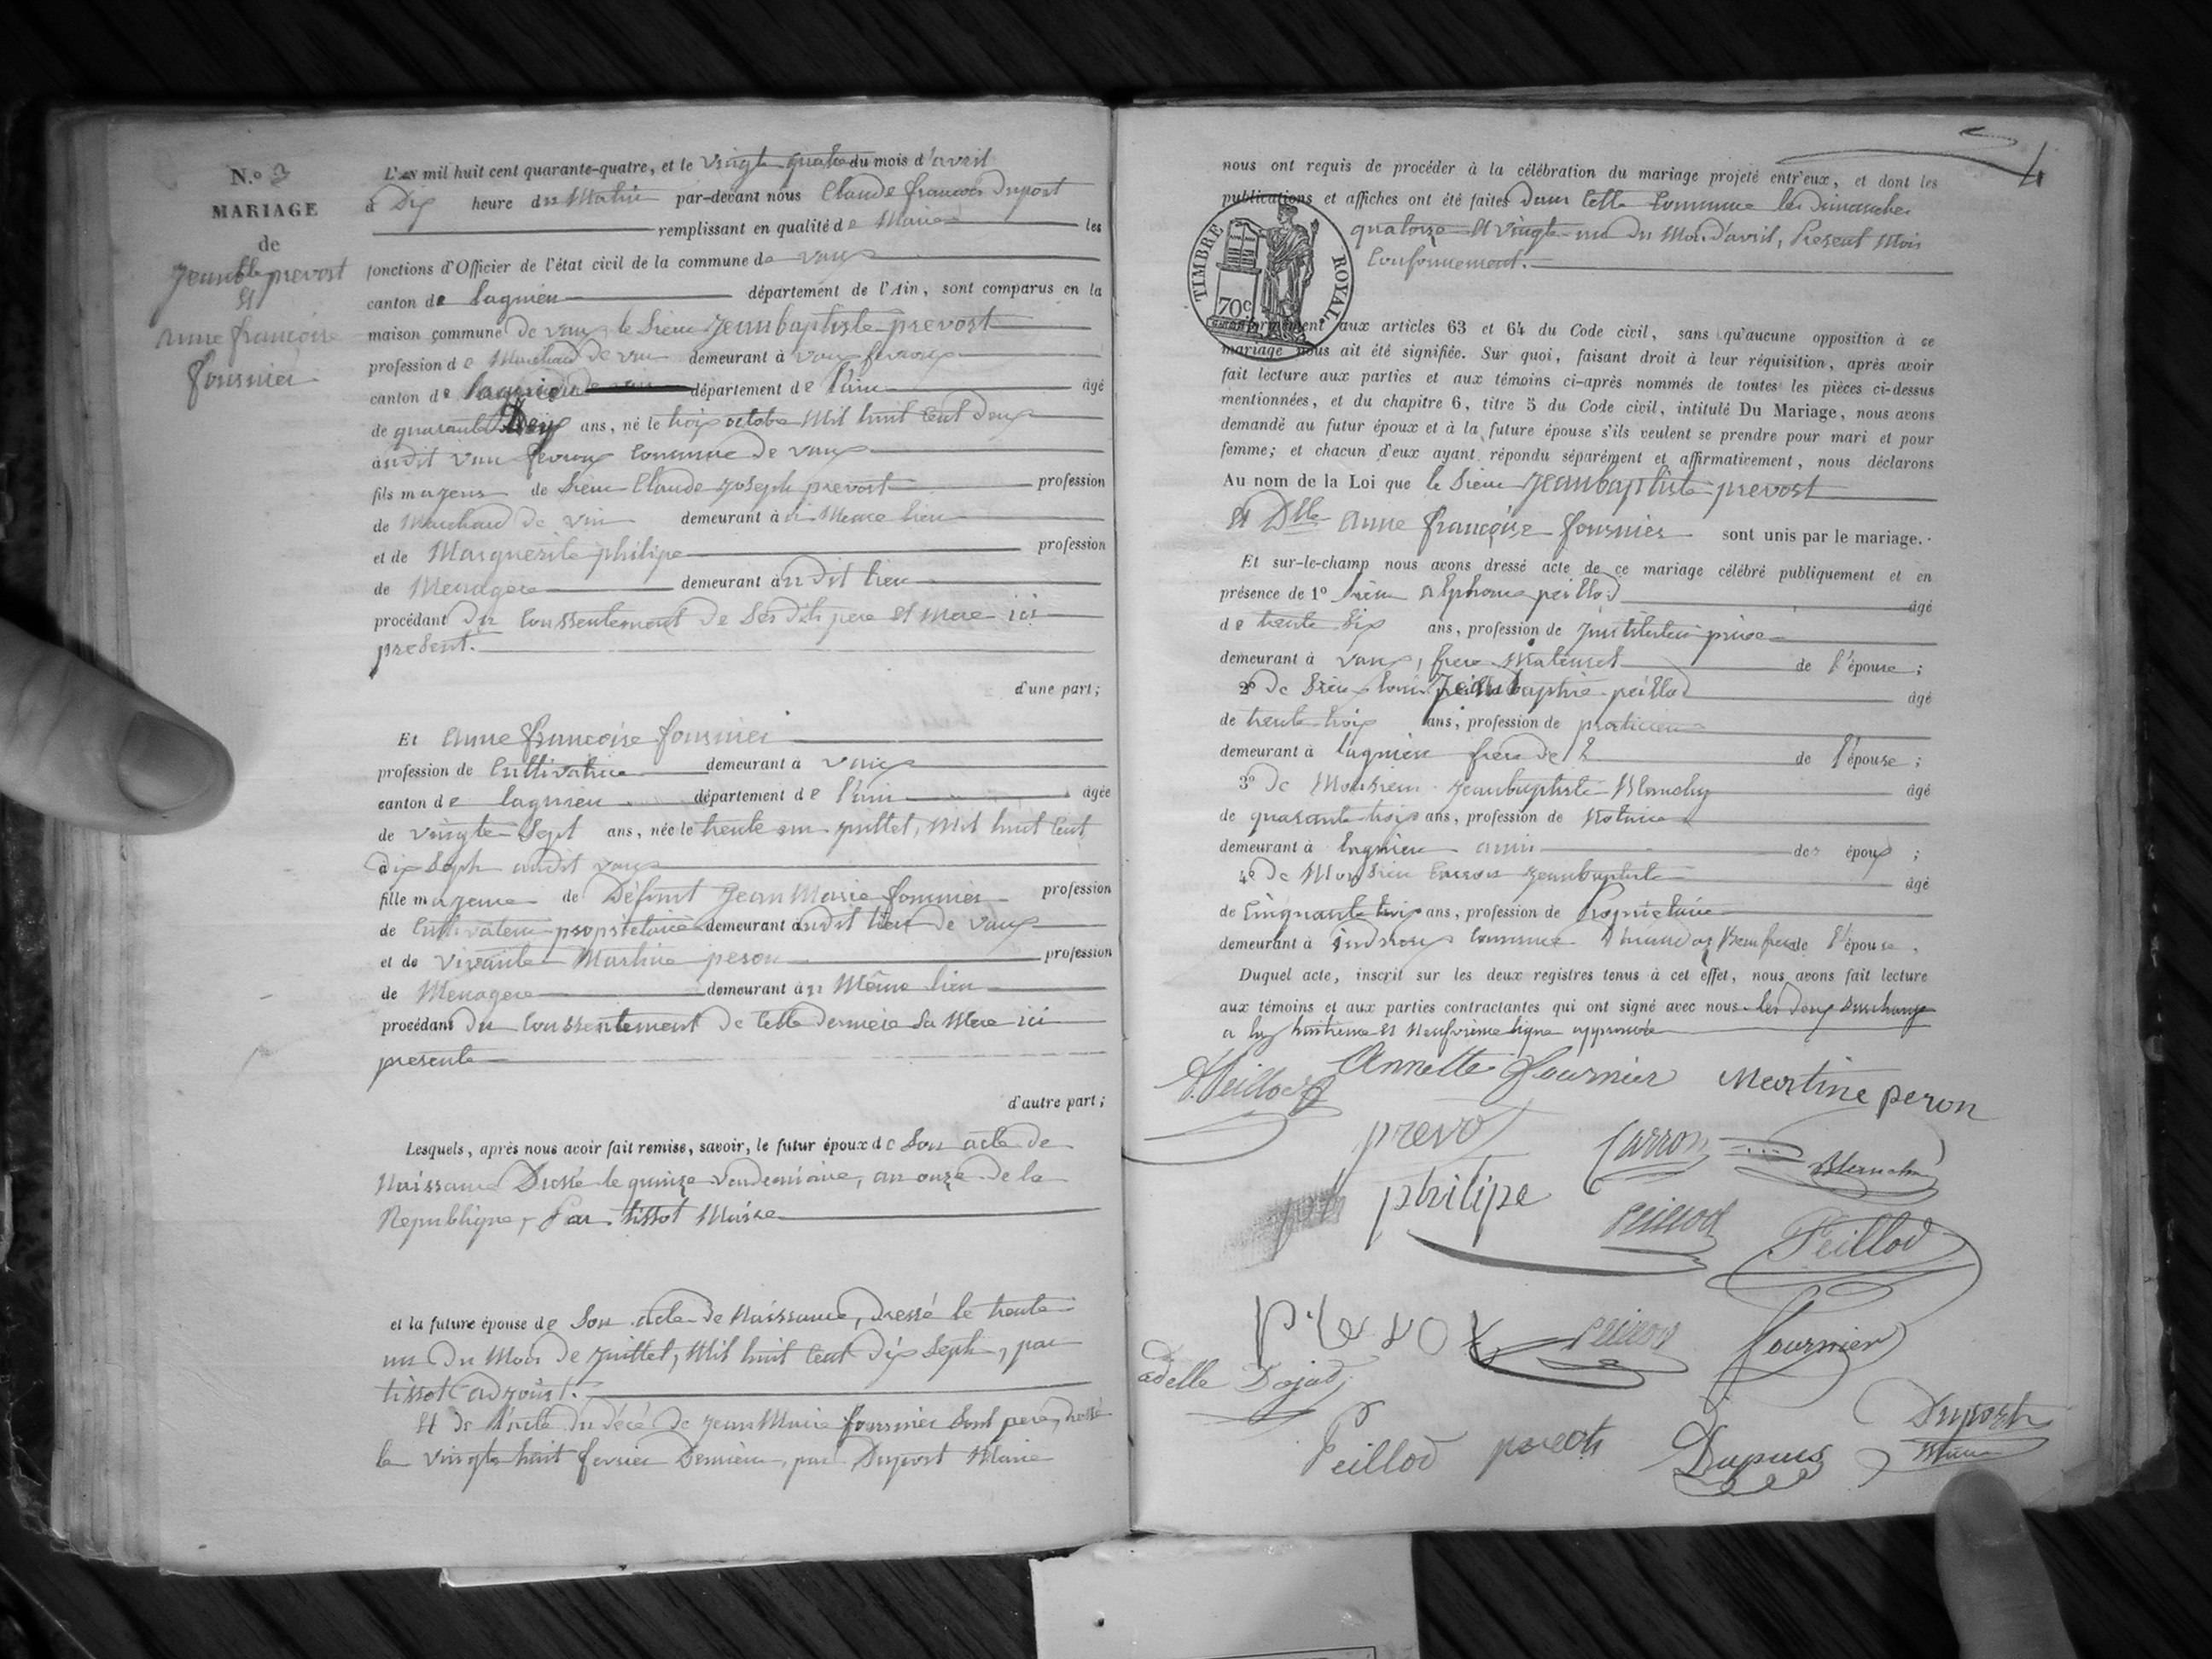 N.º 3
MARIAGE
de
Jean Bte prevost
Et
Anne françoise
fournier
L'AN mil huit cent quarante-quatre, et le vingt quatre du mois d'avril
à Dix heure du Matin par-devant nous Claude françois Dupost
remplissant en qualité de Maire les
fonctions d'Officier de l'état civil de la commune de vaux
canton de lagnieu département de l'Ain, sont comparus en la
maison commune de vaux le Sieur Jeanbaptiste prevost
profession de Marchand de vin demeurant à vaux fevroux
canton de lagnieu département de l'ain âgé
de quarante Deux ans, né le trois octobre Mil huit Cent deux
audit vaux fevroux Commune de vaux
fils majeur de Sieur Claude Joseph prevost profession
de Marchand de vin demeurant à u Meme lieu
et de Marguerite philipe profession
de Menagere demeurant audit lieu
procédant du Conssentement de Ses dits pere Et Mere ici
present.
d'une part;
Et Anne françoise fournier
profession de Cultivatrice demeurant à vaux
canton de lagnieu département de l'ain âgée
de vingte Sept ans, née le trente un juillet, Mil huit Cent
dix Seph audit vaux
fille majeure de Défunt Jean Marie fournier profession
de Cultivateur propriétaire demeurant audit lieu de vaux
et de vivante Martine peron profession
de Menagere demeurant au Même lieu
procédant du Conssentement de Cette derniere Sa Mere ici
presente
d'autre part;
Lesquels, après nous avoir fait remise, savoir, le futur époux de Son acte de
Naissance Dressé le quinze vendemiaire, an onze de la
Republique, Par tissot Maire
et la future épouse de Son acte de Naissance, dressé le trente
un du Mois de Juillet, Mil huit Cent dix Seph, par
tissot adjoint.
Et de l'acte du décé de Jean Marie fournier Sont pere, dressé
le vingte huit fevrier Dernier, par Dupost Maire
4
nous ont requis de procéder à la célébration du mariage projeté entr'eux, et dont les
publications et affiches ont été faites dans Cette Commune les dimanches
quatorze Et vingte un du Mois d'avril, Present Mois
Conformement.
TIMBRE ROYAL
70c
Conformément aux articles 63 et 64 du Code civil, sans qu'aucune opposition à ce
mariage nous ait été signifiée. Sur quoi, faisant droit à leur réquisition, après avoir
fait lecture aux parties et aux témoins ci-après nommés de toutes les pièces ci-dessus
mentionnées, et du chapitre 6, titre 5 du Code civil, intitulé Du Mariage, nous avons
demandé au futur époux et à la future épouse s'ils veulent se prendre pour mari et pour
femme; et chacun d'eux ayant répondu séparément et affirmativement, nous déclarons
Au nom de la Loi que le Sieur Jeanbaptiste prevost
Et Dlle Anne françoise fournier sont unis par le mariage.
Et sur-le-champ nous avons dressé acte de ce mariage célébré publiquement et en
présence de 1º Sieur Alphonse peillod âgé
de trente Six ans, profession de Jnstituteur prive
demeurant à vaux, frere Maternel de l'épouse;
2º de Sieur louis Jean baptiste peillod âgé
de trente trois ans, profession de praticien
demeurant à lagnieu frere de l de l'épouse;
3º de Monsieur Jeanbaptiste Blanchy âgé
de quarante trois ans, profession de Notaire
demeurant à lagnieu ami des époux;
4º de Monsieur Carron Jeanbaptiste âgé
de Cinquante trois ans, profession de Propriétaire
demeurant à Commune Beaufrere de l'épouse.
Duquel acte, inscrit sur les deux registres tenus à cet effet, nous avons fait lecture
aux témoins et aux parties contractantes qui ont signé avec nous les deux Surcharge
a la huitieme Et Neufvieme ligne approuvée
A. Peillod Annette Fournier Martine peron
prevo Carron Blanchy
philipe Peillod Peillod
prevot Peillod Fournier
adelle Dojat
Peillod prevot Dupuis Dupost
Maire